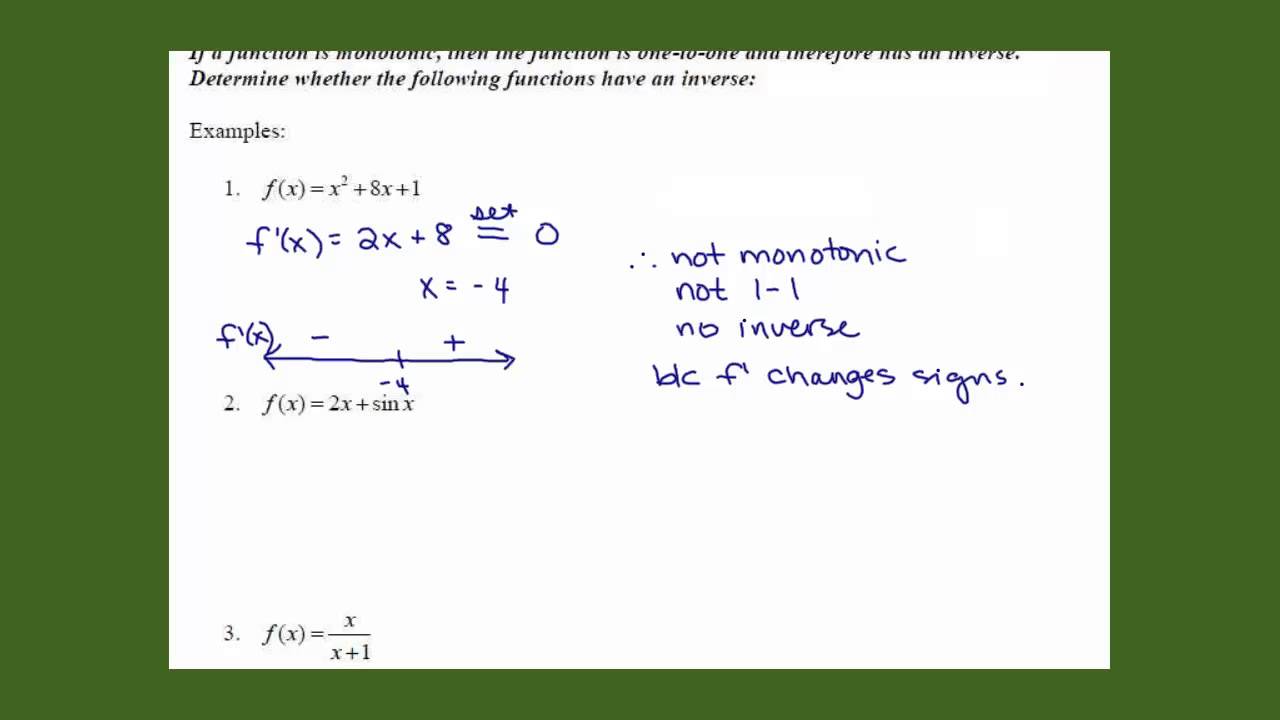 If a function is monotonic, then the function is one-to-one and therefore has an inverse.
Determine whether the following functions have an inverse:
Examples:
1. f(x) = x² + 8x + 1
f'(x) = 2x + 8 set = 0
x = -4
f'(x) - +
-4
∴ not monotonic
not 1-1
no inverse
b/c f' changes signs.
2. f(x) = 2x + sin x
3. f(x) = x/(x+1)